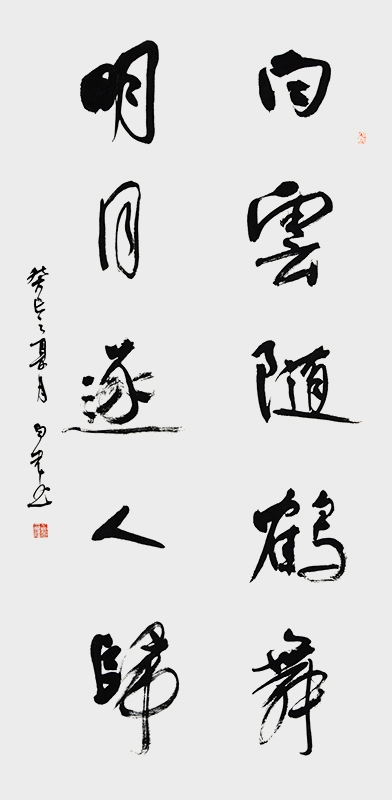 白雲随鶴舞
明月逐人歸
癸巳之夏月